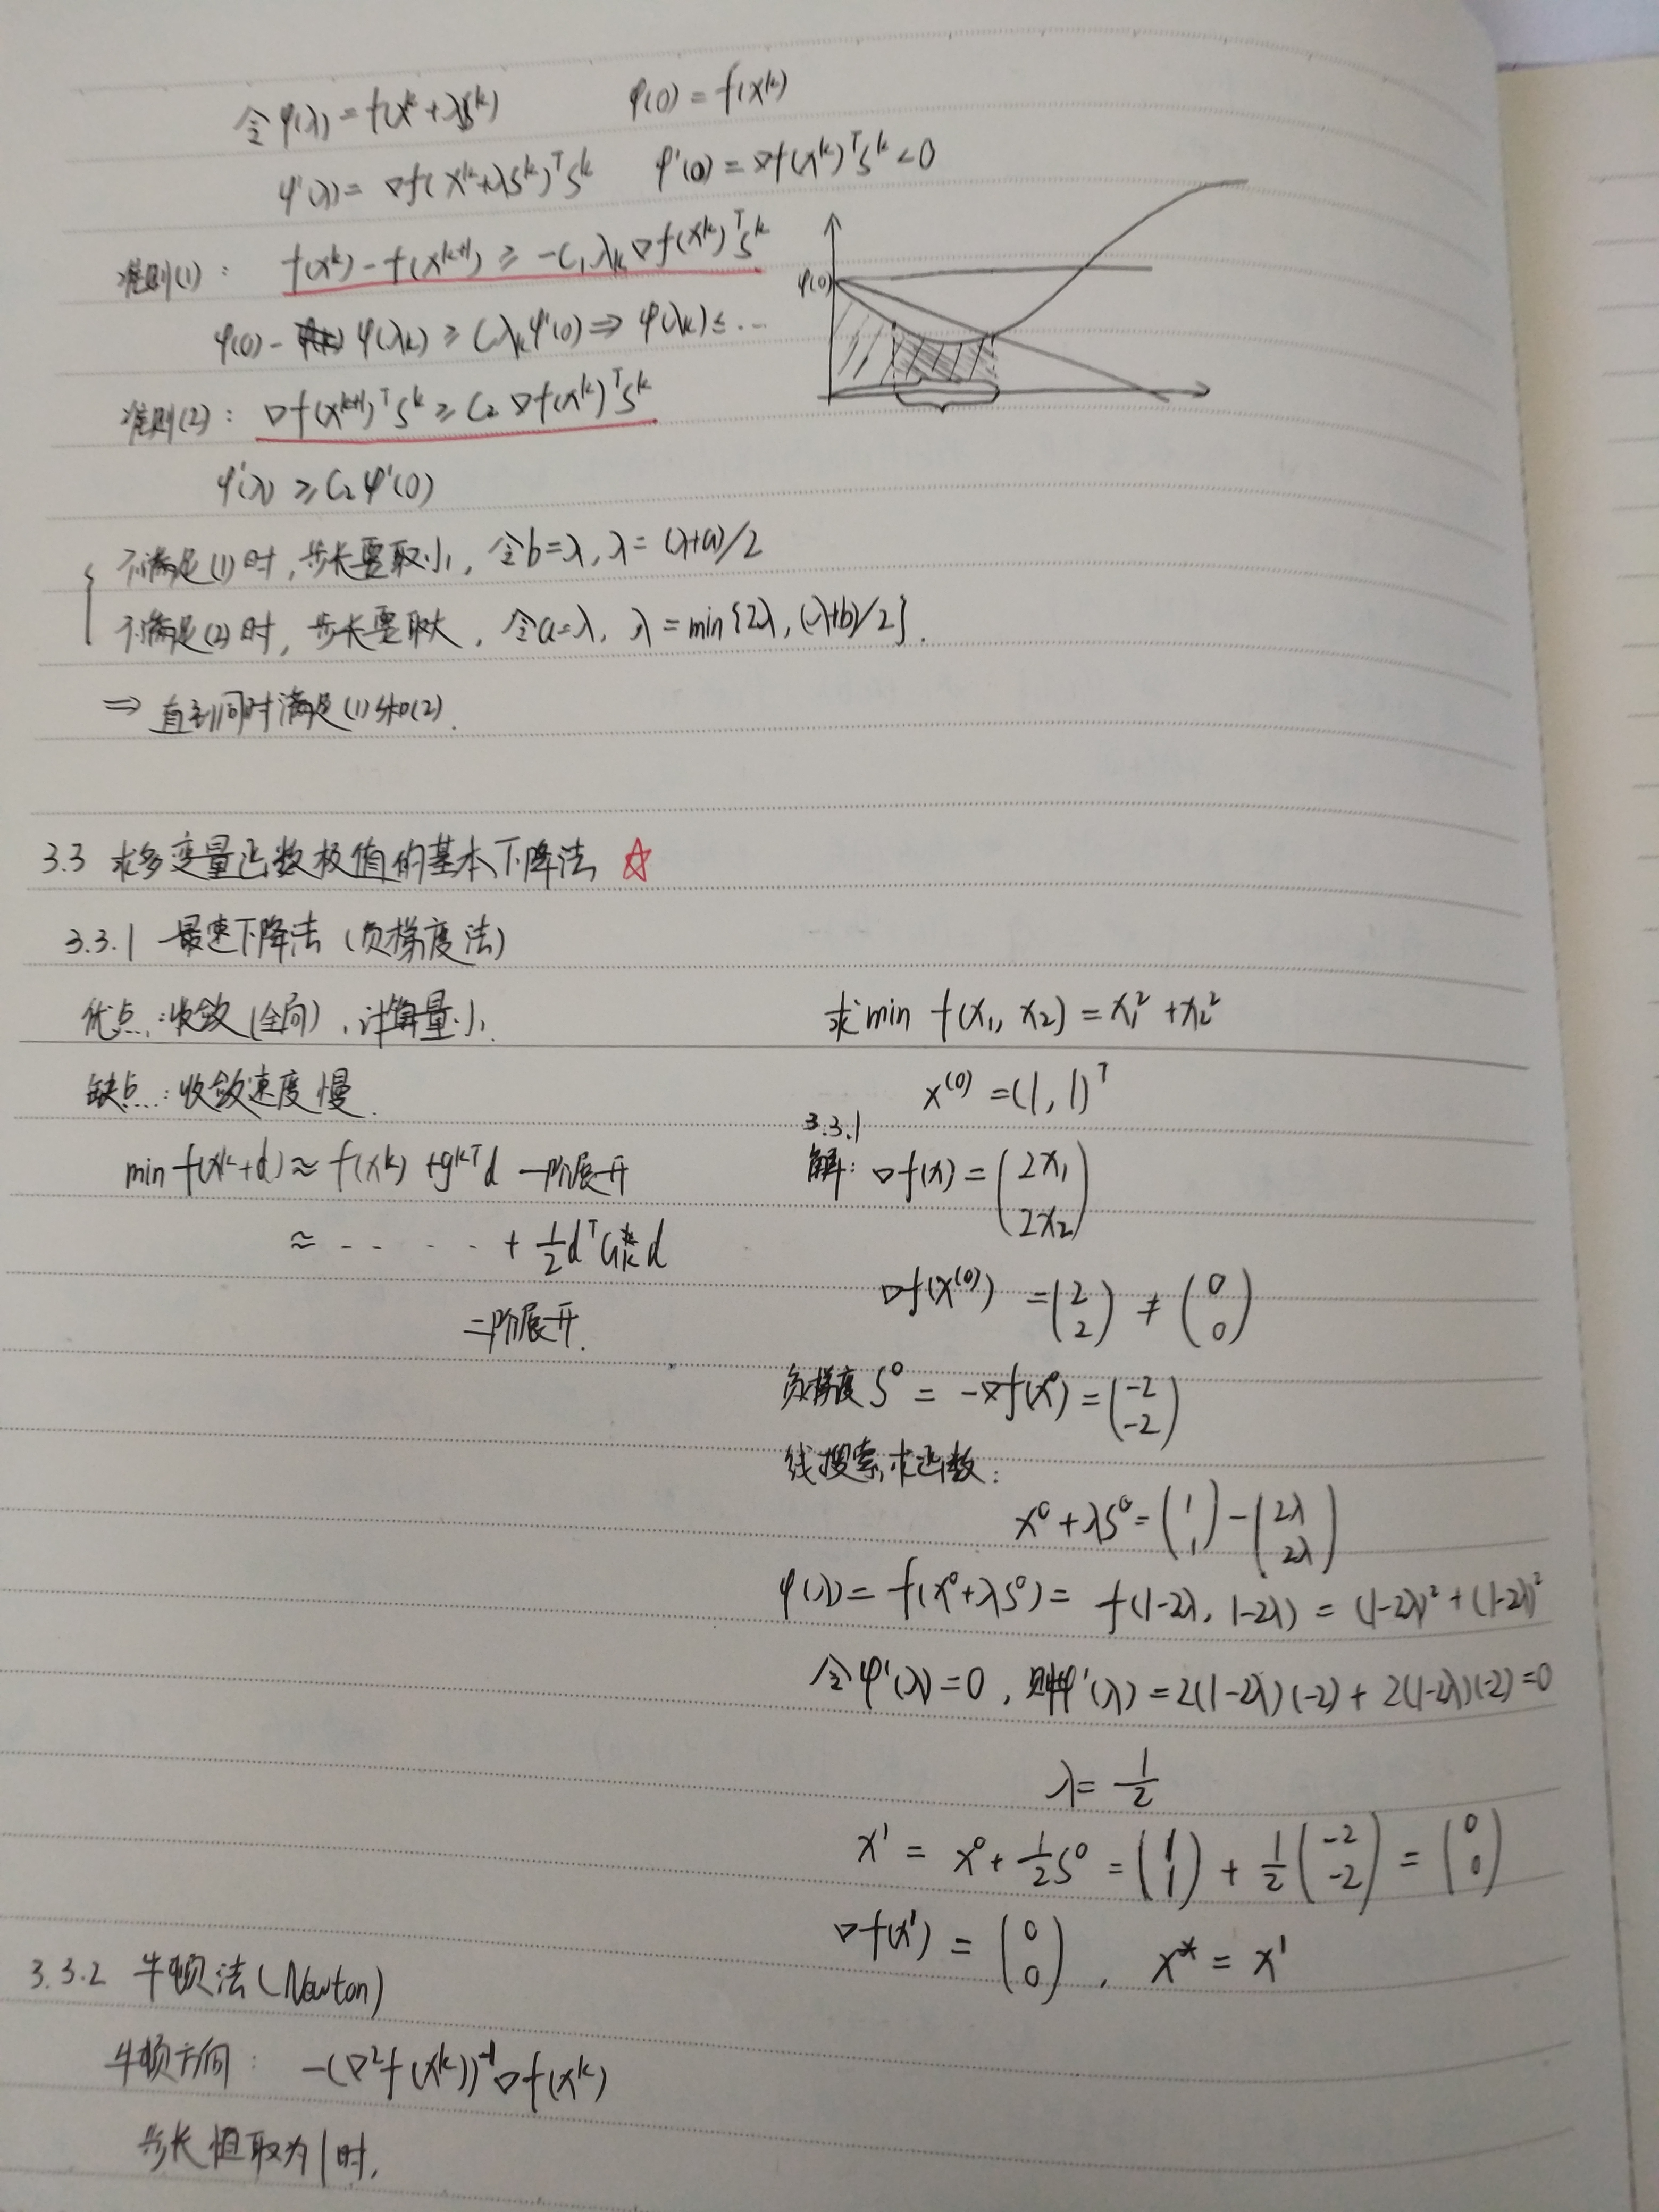 令φ(λ)=f(x^k+λS^k)    φ(0)=f(x^k)
φ'(λ)=∇f(x^k+λS^k)^T S^k    φ'(0)=∇f(x^k)^T S^k<0
准则(1): f(x^k)-f(x^{k+1}) ≥ -C₁λ_k∇f(x^k)^T S^k
φ(0)
φ(0)-φ(λ_k) ≥ Cλ_kφ'(0) ⇒ φ(λ_k) ≤ …
准则(2): ∇f(x^{k+1})^T S^k ≥ C₂∇f(x^k)^T S^k
φ'(λ) ≥ C₂φ'(0)
{ 不满足(1)时,步长要取小,令b=λ,λ=(λ+a)/2
不满足(2)时,步长要取大,令a=λ,λ=min{2λ,(λ+b)/2}.
⇒ 直到同时满足(1)和(2).
3.3 求多变量函数极值的基本下降法 ☆
3.3.1 最速下降法(负梯度法)
优点:收敛(全局),计算量小.
缺点:收敛速度慢.
min f(x^k+d)≈f(x^k)+g^{kT}d 一阶展开
≈ - - - - - + ½d^T G_k d
二阶展开.
求min f(x₁,x₂)=x₁²+x₂²
x^(0)=(1,1)^T
3.3.1
解: ∇f(x)=(2x₁ 2x₂)
∇f(x^(0))=(2 2)≠(0 0)
负梯度S⁰=-∇f(x⁰)=(-2 -2)
线搜索求函数:
x⁰+λS⁰=(1 1)-(2λ 2λ)
φ(λ)=f(x⁰+λS⁰)=f(1-2λ,1-2λ)=(1-2λ)²+(1-2λ)²
令φ'(λ)=0,则φ'(λ)=2(1-2λ)(-2)+2(1-2λ)(-2)=0
λ=1/2
x¹=x⁰+½S⁰=(1 1)+½(-2 -2)=(0 0)
∇f(x¹)=(0 0), x*=x¹
3.3.2 牛顿法(Newton)
牛顿方向: -(∇²f(x^k))^{-1}∇f(x^k)
步长恒取为1时,